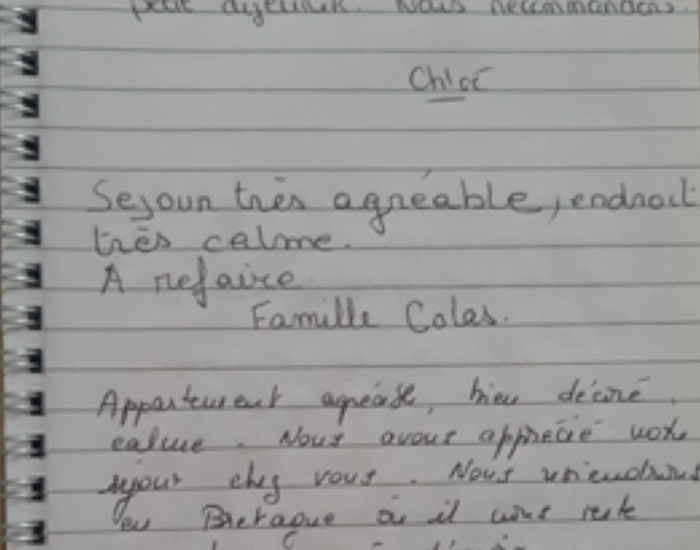 petit déjeuner. Nous recommandons.
Chloé
Sejour très agréable, endroit
très calme.
A refaire.
Famille Colas.
Appartement agréable, bien décoré,
calme. Nous avons apprécié notre
séjour chez vous. Nous reviendrons
en Bretagne où il nous reste